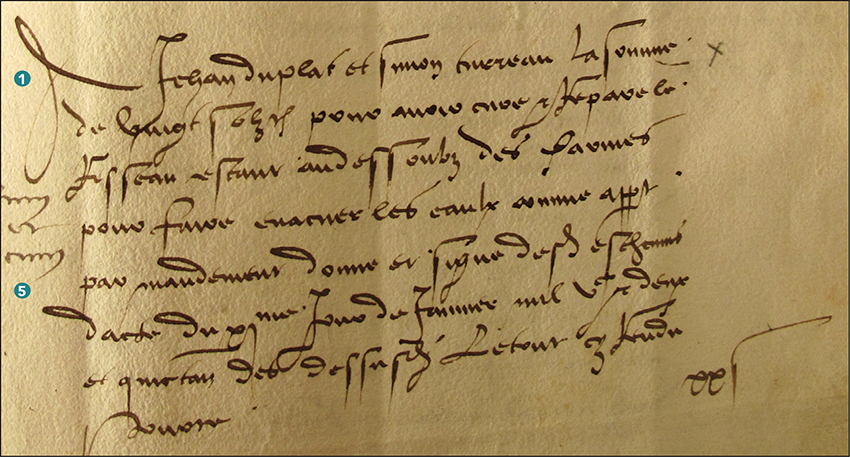 A Jehan Duplat et Simon Turreau la somme
de vingt solz tz pour avoir cure & repare le
Risseau estant audessoubz des Carmes
pour faire evacuer les eaulx comme appt
par mandement donne et signe desd eschevins
dacte du xme jour de Janvier mil vc & deux
et quictan des dessusd Retour cy Rendu
xx s
1
5